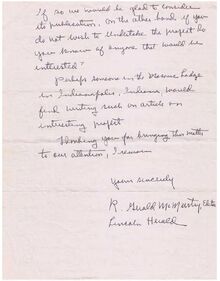 If so we would be glad to consider
its publication. On the other hand if you
do not wish to undertake the project do
you know of anyone that would be
interested?
Perhaps someone in the Masonic Lodge
in Indianapolis, Indiana would
find writing such an article an
interesting project
Thanking you for bringing this matter
to our attention, I remain
Yours sincerely
R. Gerald McMurtry Editor
Lincoln Herald